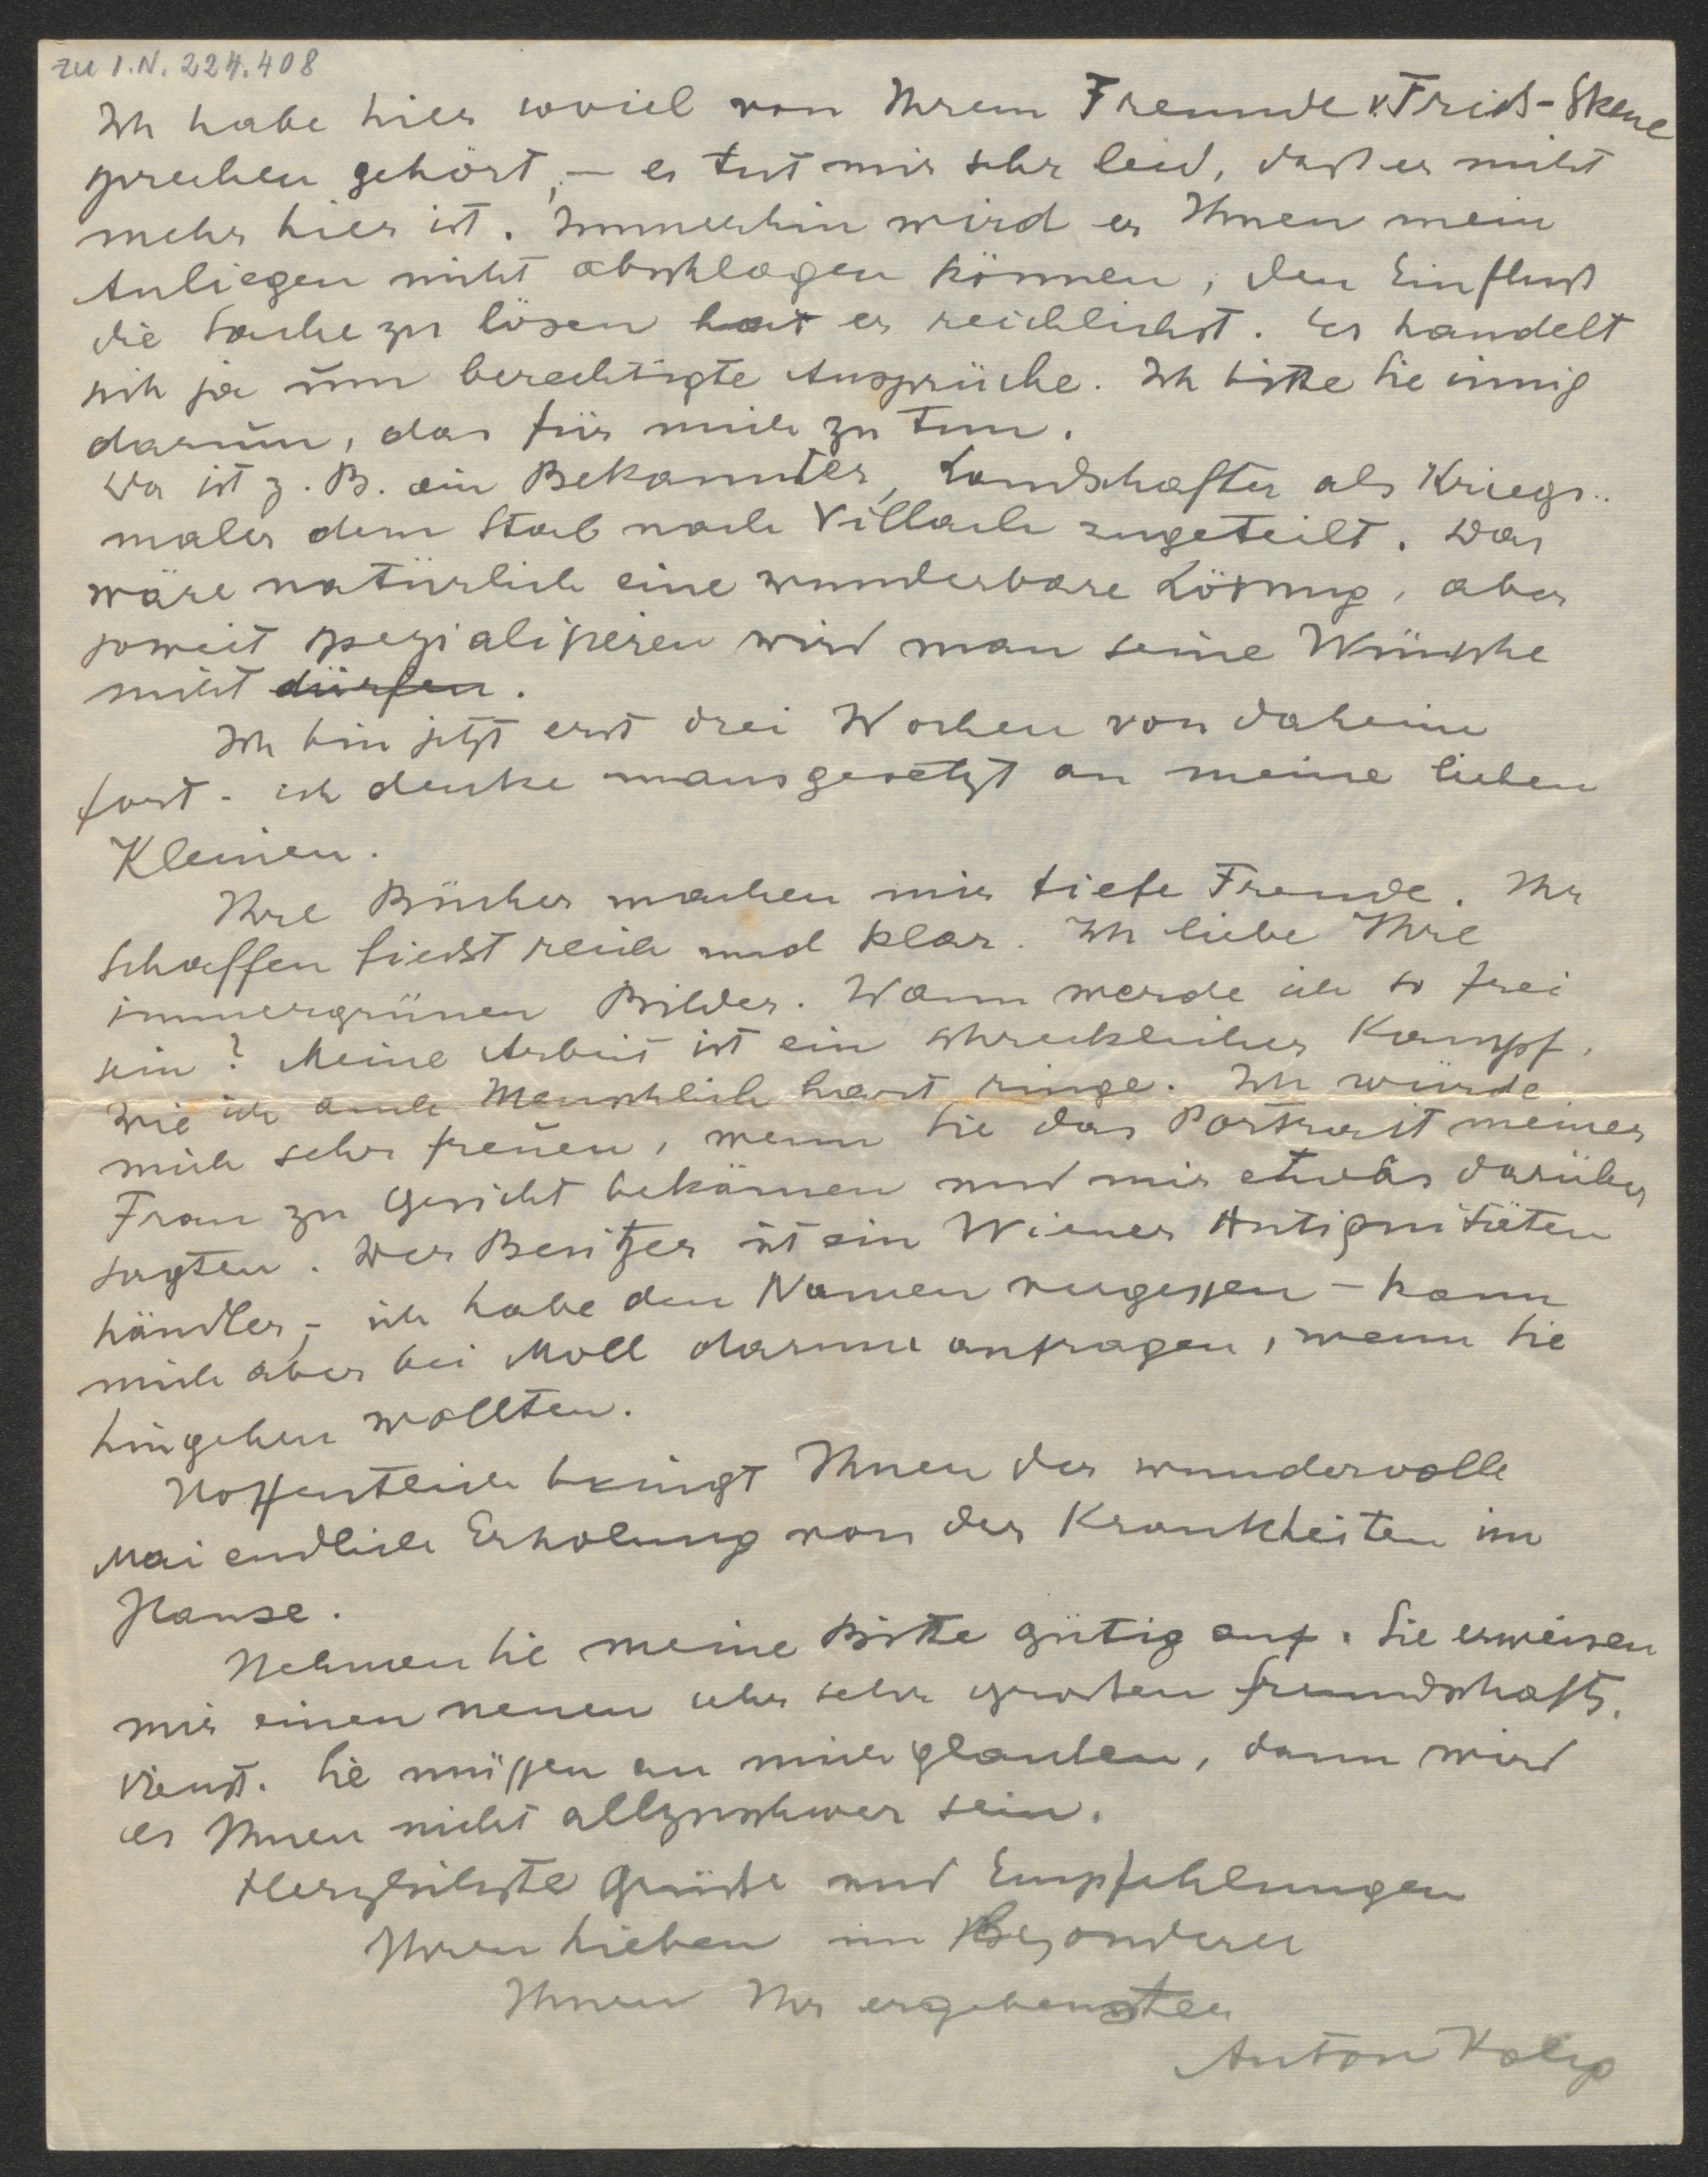 zu I.N. 224.408
Ich habe hier soviel von Ihrem Freunde v. Fries-Skene
sprechen gehört, – es tut mir sehr leid, dass er nicht
mehr hier ist. Immerhin wird er Ihnen mein
Anliegen nicht abschlagen können, den Einfluss
die Sache zu lösen hat er reichlichst. Es handelt
sich ja um berechtigte Ansprüche. Ich bitte Sie innig
darum, das für mich zu tun.
Da ist z. B. ein Bekannter, Landschafter als Kriegs-
maler dem Stab nach Villach zugeteilt. Das
wäre natürlich eine wunderbare Lösung, aber
soweit spezialisieren wird man seine Wünsche
nicht dürfen.
Ich bin jetzt erst drei Wochen von daheim
fort – ich denke unausgesetzt an meine lieben
Kleinen.
Ihre Bücher machen mir tiefe Freude. Ihr
Schaffen fiesst reich und klar. Ich liebe Ihre
immergrünen Bilder. Wann werde ich so frei
sein? Meine Arbeit ist ein schrecklicher Kampf.
Wie ich auch Menschlich hart ringe. Ich würde
mich sehr freuen, wenn Sie das Portrait meiner
Frau zu Gesicht bekämen und mir etwas darüber
sagten. Der Besitzer ist ein Wiener Antiquitäten
händler, – ich habe den Namen vergessen – kann
mich aber bei Moll darum anfragen, wenn Sie
hingehen wollten.
Hoffentlich bringt Ihnen der wundervolle
Mai endlich Erholung von den Krankheiten im
Hause.
Nehmen Sie meine Bitte gütig auf. Sie erweisen
mir einen neuen sehr sehr grossen freundschafts-
dienst. Sie müssen an mich glauben, dann wird
es Ihnen nicht allzuschwer sein.
Herzlichste Grüsse und Empfehlungen
Ihren Lieben im Besonderen
Ihnen Ihr ergebensten
Anton Kolig